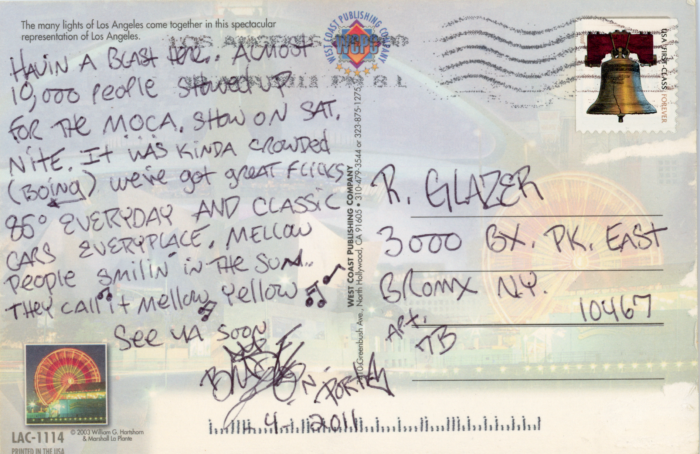 The many lights of Los Angeles come together in this spectacular
representation of Los Angeles.
LOS ANGELES
HAVIN A BLAST HERE.. ALMOST
10,000 PEOPLE SHOWED UP
FOR THE MOCA. SHOW ON SAT.
NITE. IT WAS KINDA CROWDED
(BOING) WE'VE GOT GREAT FLICKS
86° EVERYDAY AND CLASSIC
CARS EVERYPLACE. MELLOW
PEOPLE SMILIN' IN THE SUN..
THEY CALL IT MELLOW YELLOW
SEE YA SOON
4 2011
WEST COAST PUBLISHING COMPANY
WEST COAST PUBLISHING COMPANY
Greenbush Ave., North Hollywood, CA 91605 • 310-479-3544 or 323-875-1275
USA FIRST-CLASS FOREVER
R. GLAZER
3000 BX. PK. EAST
BRONX N.Y.
10467
APT.
LAC-1114
© 2003 William G. Hartshorn
& Marshall La Plante
PRINTED IN THE USA